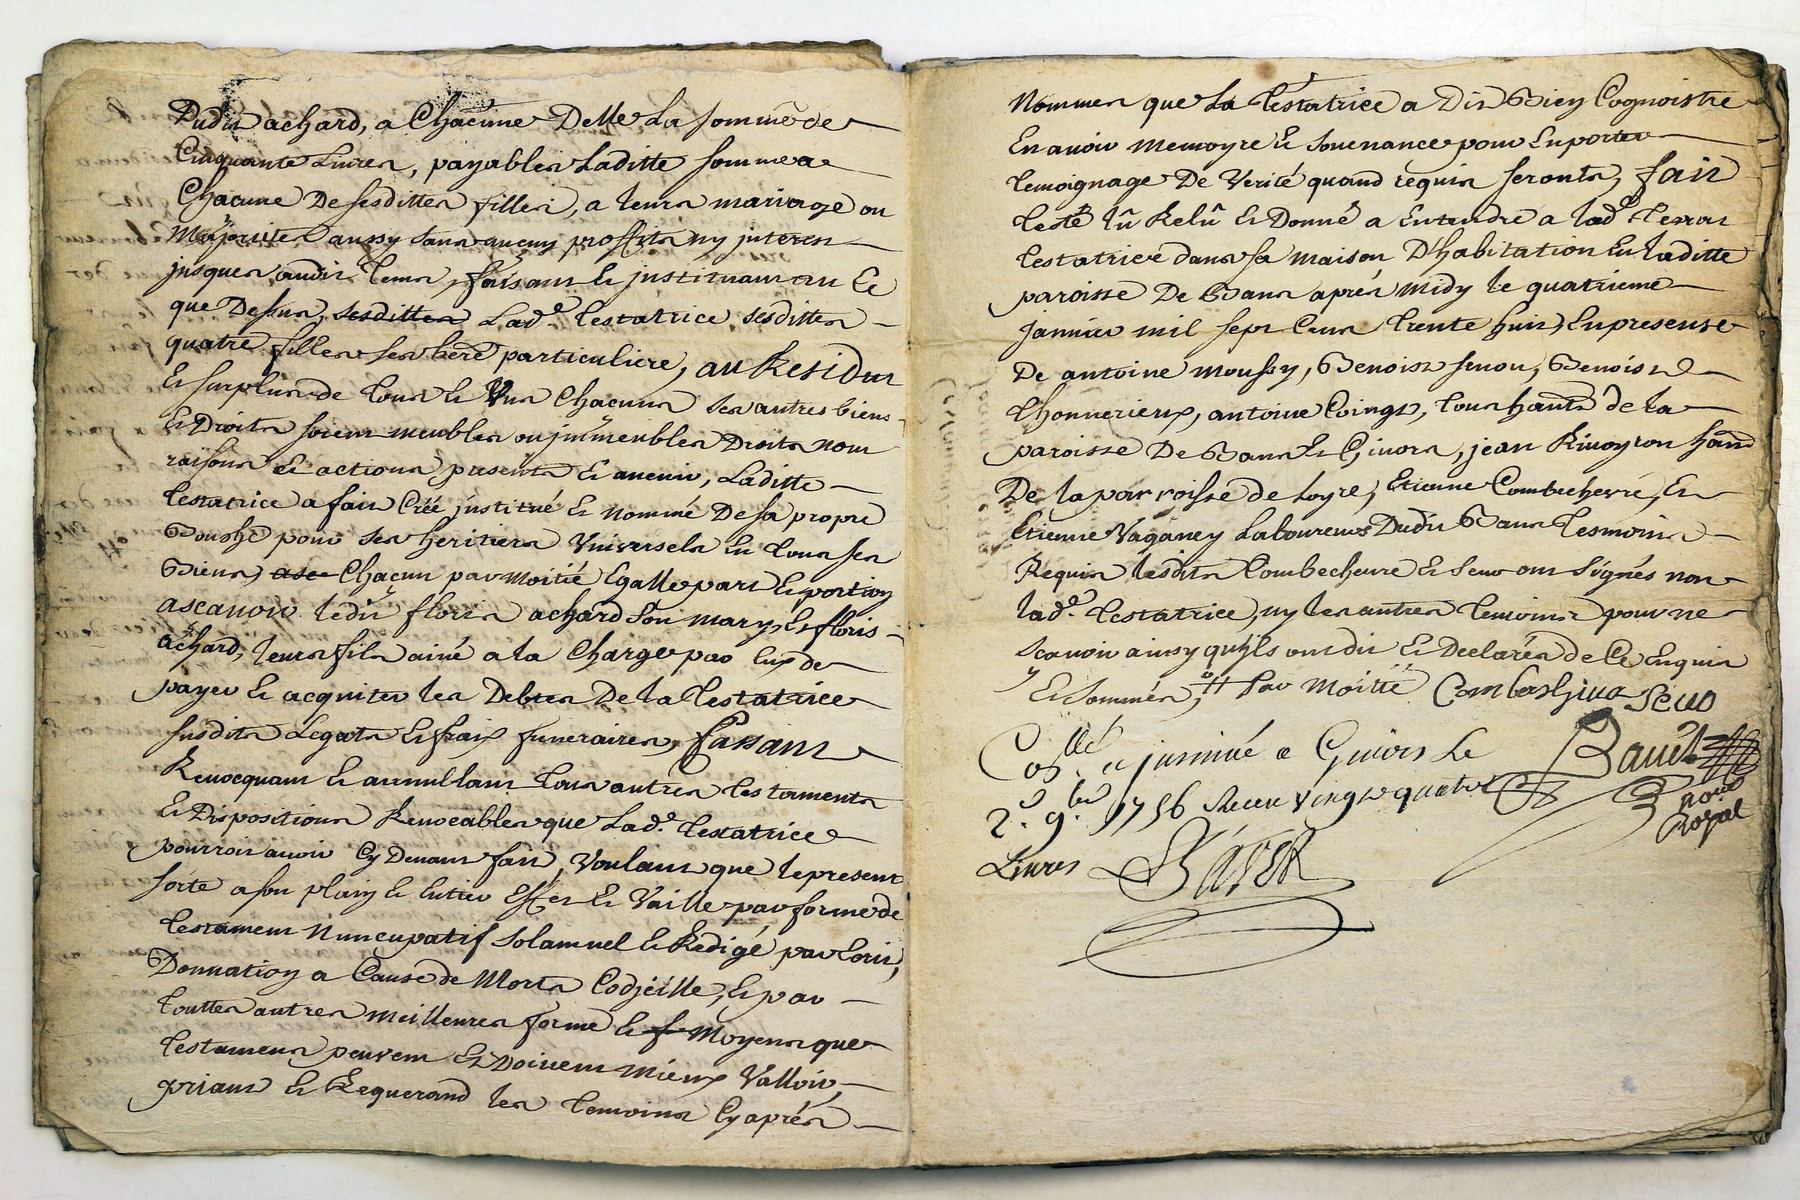 Dudit achard, a Chacune Delle La somme de
Cinquante Livres, payables Laditte somme a
Chacune De sesdittes filles, a leurs mariage ou
Majorites aussy sans aucuns proffits ny jnterest
jusques audit tems, faisant & jnstituant au Ce
que Dessus, Lad.e testatrice sesdittes
quatre filles ses here particuliere, au Residus
Et surplus de tous & Uns Chacuns ses autres biens
Et Droits soient meubles ou jmmeubles Droits nom
raisons et actions presents Et avenir, Laditte
testatrice a fait Créé jnstitué Et nommé De sa propre
Bouche pour ses heritiers Vniversels En tous ses
Biens, Chacun par Moitié Egalle part Et portion
ascavoir ledit floris achard son mary, Et floris
achard, leurs fils ainé a la Charge par Eux de
payer Et acquiter les Debtes De la testatrice
susdits Legats Et fraix funeraires, Cassant
Revocquant Et annullant tous autres testaments
Et Dispositions Revocables que Lad.e testatrice
pourroit avoir Cy Devant fait, Voulant que le present
sorte a son plain Et Entier Effet Et Vaille par forme de
testament Nuncupatif solamnel Et Redigé par Ecrit,
Donnation a Cause de Morts Codjcille, Et par
touttes autres meilleures forme Et Moyens que
testaments peuvent Et Doivent mieux Valloir,
priant Et Requerand les temoins Cy aprés
Nommes que La testatrice a Dit Bien Cognoistre
En avoir memoyre Et souvenance pour En porter
temoignage De Verité quand requis seronts, fait
Leû Relû Et Donné a Entendre a lad.e
testatrice dans sa maison D'habitation En laditte
paroisse De Bans aprés midy le quatrieme
janvier mil sept Cent trente huit, En presense
De antoine moussy, Benoist senou, Benoist
thonnerieux, antoine Coingt, tous hants de la
paroisse De Bans Et Givors, jean Rivoyron hant
De la parroisse de Loyre, Etienne Combechevre, Et
Etienne Vaganey Laboureurs Dudit Bans tesmoins
Requis lesdits Combechevre Et seno ont signés non
lad.e testatrice, ny les autres temoins pour ne
scavoir ainsy quyls ont dit Et Declarés de Ce Enquis
Et sommés, par Moitié Combechiure Seno
Co.llé et jnsinué a Givors Le Bavet
2.e 9.bre 1756 Receu vingt quatre nore
Livres Royal